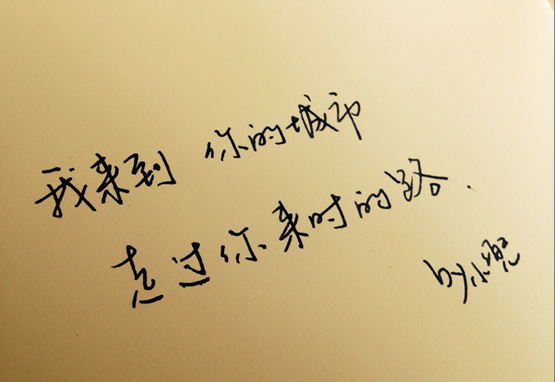 我来到 你的城市
走过你来时的路.
by小